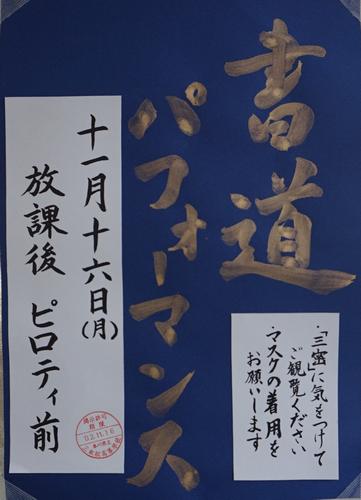 書道
パフォーマンス
十一月十六日(月)
放課後 ピロティ前
・「三密」に気をつけて
ご観覧ください
・マスクの着用を
お願いします
掲示許可
期限
02.11.16